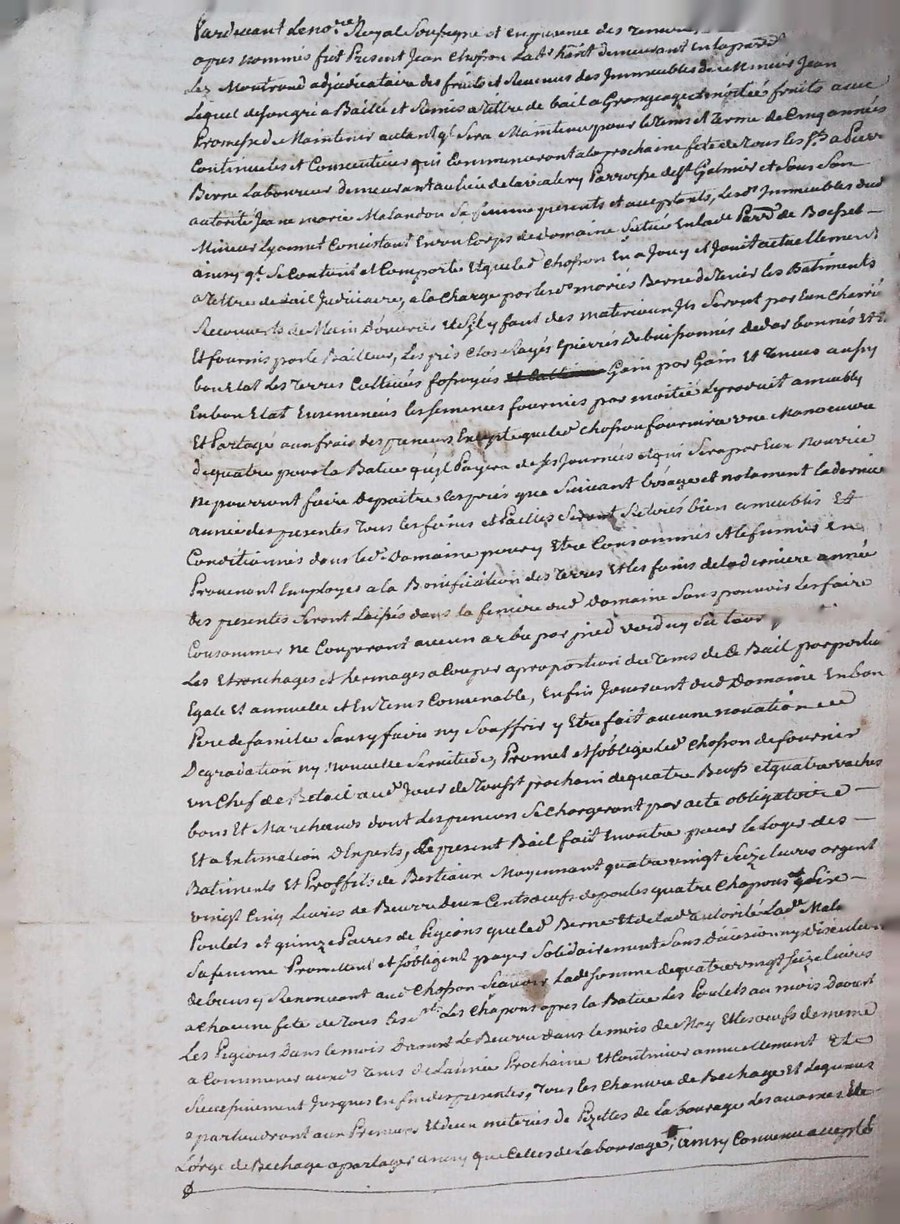 Pardevant le no.re Royal Soussigne et en presence des temoins
apres nommés fut Present Jean Chosson Lab.r hab.t demeurant en la par.sse
de Montrond adjudicataire des fruits et Revenus des Immeubles de Mineur Jean
Lequel de son gré a Baillé et Remis a tittre de bail a Grangeage a moitiés fruits avec
Promesse de Maintenir autant q.l Sera Maintenu pour le tems et terme de Cinq années
Continuelles et Consecutives qui Commenceront a la prochaine fete de tous les S.ts a Pierre
Berne Laboureur demeurant au lieu de Parroisse de S.t Galmier et Sous Son
autorité Jeane marie Malandon Sa femme presents et acceptants, Lesd.s Immeubles dud
Mineur Lyonnet Concistant En un Corps de domaine Scitué En lad.e Parr.sse de Boisset
ainsy q.l Se Contient et Comporte Et que led Chosson En a Jouy et Jouit actuellement
a tittre de bail Judiciaire, a la Charge par lesd.s mariés Berne de tenir les Batiments
Recouverts de Main D'ouvrier Et S'il y faut des materiaux Ils Seront par Eux Charriés
Et fournis par le Bailleur, Les prés Clos Rayés Epierrés Debuissonnés de darbonnés Et En
bon Etat Les Terres Cultivées fossoyés Gain par Gain Et tenues aussy
En bon Etat Ensemencés les semences fournies par moitié Le produit ameubly
Et Partagé aux frais des preneurs Excepté que led Chosson fournira une Manoeuvre
de quatre pour la Batue qu'il Payera de Ses Journées Et qui Sera par Eux Nourrie
Ne pourront faire Depaitre les prés que Suivant l'usage et notament la derniere
année des presentes tous les foins et Pailles Seront Retirés bien ameublis Et
Conditionnés dans led. Domaine pour y Etre Consommés Et le fumier En
Provenant Employes a la Bonification des Terres Et les foins de la derniere année
des presentes Seront Laissés dans la feniere dud Domaine Sans pouvoir Les faire
Consommer ne Couperont aucun arbre par pied verd ny Sec
Les Etronchages et hermages a Couper a proportion du tems de Ce Bail par portion
Egale Et annuelle et En Tems Convenable, Enfin Jouiront dud Domaine En bon
Pere de famille Sans y faire ny Souffrir y Etre fait aucune novation
Degradation ny nouvelle Servitude, Promet et s'oblige led Chosson de fournir
un Chef de Betail aud Jour de Touss.t prochain de quatre Boeufs et quatre vaches
bons Et Marchands dont les preneurs Se Chargeront par acte obligatoire
Et a Estimation D'Experts, Le present Bail fait En outre pour le Loger des
Batiments Et Proffits de Bestiaux Moyennant quatre vingt Seize livres argent
vingt Cinq Livres de Beurre deux Cents oeufs de poules quatre Chapons Six
Poulets et quinze Paires de Pigeons que led Berne Et de lad.e autorité Lad.e Male
Sa femme Promettent et s'obligent payer Solidairement Sans Division ny discution
de biens y Renonçant aud Chosson Scavoir Lad.e Somme de quatre vingt Seize livres
a Chacune fete de Tous les S.ts Les Chapons apres la Batue Les Poulets au mois Daoust
Les Pigeons Dans le mois Daoust Le Beurre dans le mois de May Et les oeufs de meme
a Commencer auxd.s Tems de L'année Prochaine Et Continuer annuellement Et
Successivement Jusques En fin des presentes, Tous les Chanvre de Bechage Et Legumes
apartiendront aux Preneurs Et deux meteries de Pezettes de labourage Les avoines Et
L'orge de Bechage a partager ainsy que Celles de Labourage, ainsy Convenu accepté